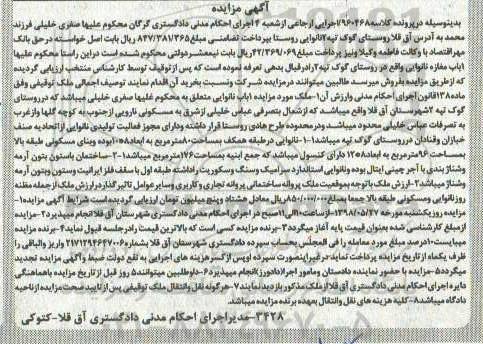 آگهی مزایده
بدینوسیله درپرونده کلاسه۹۶۰۴۶۸اجرایی ارجاعی ازشعبه ۴ اجرای احکام مدنی دادگستری گرگان محکوم علیها صغری خلیلی فرزند
محمد به آدرس آق قلاروستای گوک تپه۲نانوایی روستا بپرداخت تضامنی مبلغ ۸۴۷/۳۸۱/۳۶۵ریال بابت اصل خواسته در حق بانک
مهراقتصاد با وکالت فاطمه وکیلا ونیز پرداخت مبلغ ۴۲/۳۶۹/۰۶۹ریال بابت نیمعشردولتی محکوم شده است دراین راستا محکوم علیها
۱باب مغازه نانوایی واقع در روستای گوک تپه۲رادرقبال بدهی تعرفه نموده است که پس ازتوقیف توسط کارشناس منتخب ارزیابی گردیده
که ازطریق مزایده بفروش میرسد طالبین میتوانند درمزایده شرکت ونسبت بخرید آن اقدام نمایند توصیف اجمالی ملک توقیفی وفق
ماده۱۳۸قانون اجرای احکام مدنی وارزش آن۱-ملک مورد مزایده ۱باب نانوایی متعلق به محکوم علیها صغری خلیلی میباشد که درروستای
گوک تپه ۲شهرستان آق قلا واقع میباشد که ازشمال بتصرفی عباس خلیلی ازشرق به مسکونی نارویی ازجنوب به کوچه گلها وازغرب
به تصرفات عباس خلیلی محدود میباشدودرمحدوده طرح هادی روستا قرار داشته ودارای مجوز فعالیت تولیدی نانوایی ازاتحادیه صنف
خبازان وقنادان درروستای گوک تپه ۲میباشد۱-۱-نانوایی درطبقه همکف بمساحت ۸۰مترمربع به ابعاد۵*۱۰بوده وبنای مسکونی طبقه بالا
بمساحت ۹۶مترمربع به ابعاد۵*۱۲ دارای کنسول میباشد که جمع ابنیه بمساحت۱۷۶مترمربع میباشد۱-۲-ساختمان باستون بتون آرمه
وشناژ بندی با آجر چینی ایتال بوده ونانوایی استاندارد سرامیک وسنگ وسکوریت راداشته طبقه اول با سقف فلز ایرانیت وستون وبتون آرمه
وشناژ میباشد۲-ارزش ملک باتوجه بموقعیت ملک پروانه ساختمانی پروانه تجاری وکاربری وسایرعوامل تاثیرگذاردرارزش ملک ازجمله مظنه
روز نانوایی ومسکونی طبقه بالا جمعا بمبلغ ۸۵۰/۰۰۰/۰۰۰ریال معادل هشتاد وپنج میلیون تومان ارزیابی گردیده است شرایط آگهی مزایده۱-
مزایده روزیکشنبه مورخه ۱۳۹۸/۰۵/۲۷-ازساعت۱۰الی۱۱صبح دراجرای احکام مدنی دادگستری شهرستان آق قلاانجام میپذیرد۲-مزایده
از مبلغ کارشناسی شده بعنوان قیمت پایه آغاز میگردد۳-برنده مزایده کسی است که بالاترین قیمت رادرجلسه قبول نماید۴-برنده مزایده
میبایست۱۰درصد مبلغ مورد معامله را فی المجلس بحساب سپرده دادگستری شهرستان آق قلا بشماره۲۱۷۱۲۹۴۶۴۷۰۰۶ واریز والباقی را
ظرف یکماه ازتاریخ مزایده پرداخت نماید-درغیراینصورت سپرده اوپس ازکسرهزینه های اجرایی به نفع دولت ضبط وآگهی مزایده تجدید
میگردد۵-مزایده با حضور نماینده دادستان ومامور اجراودادورزانجام میپذیرد۶-داوطلبین میتوانند۵ روز قبل از تاریخ مزایده باهماهنگی
دایره اجرای احکام مدنی دادگستری آق قلاازملک مذکور بازدیدنمایند۷-هرگونه نقل وانتقال ملک توقیفی پس ازتایید صحت مزایده ازناحیه
دادگاه میباشد۸-کلیه هزینه های نقل وانتقال بعهده برنده مزایده میباشد.
۳۴۲۸-مدیراجرای احکام مدنی دادگستری آق قلا-کتوکی